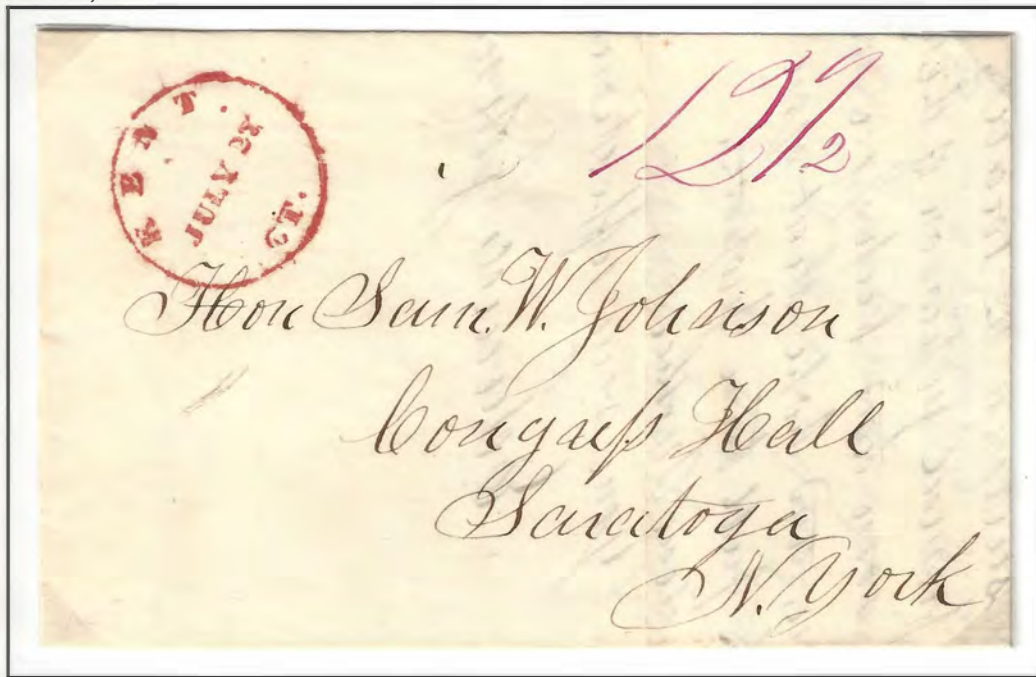 KENT. CT.
JULY
12 1/2
Hon Sam. W. Johnson
Congress Hall
Saratoga
N. York